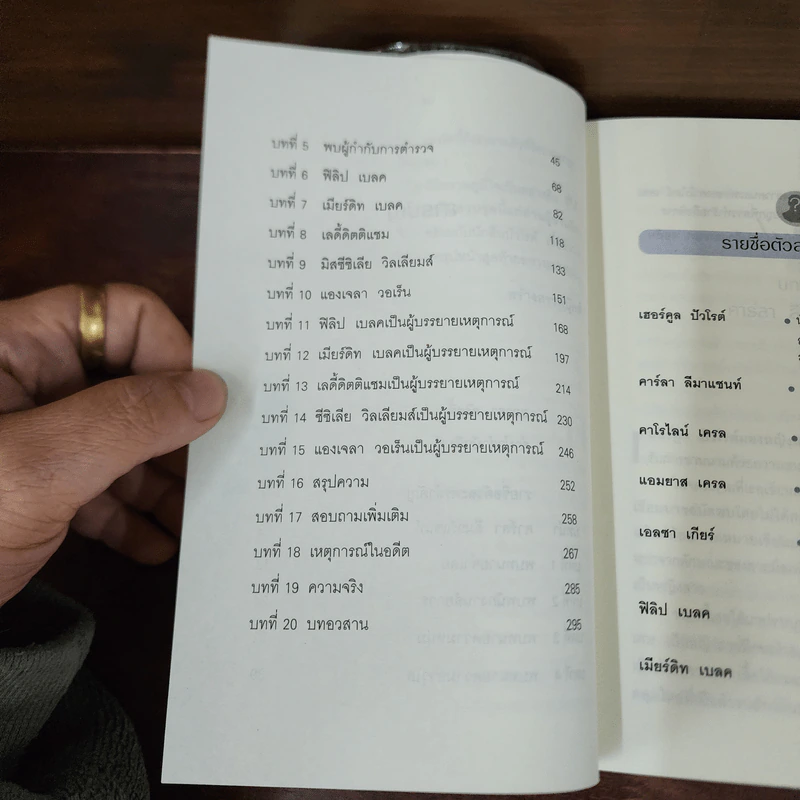 บทที่ 5 พบผู้กำกับการตำรวจ 45
บทที่ 6 ฟิลิป เบลค 68
บทที่ 7 เมียร์ดิท เบลค 82
บทที่ 8 เลดี้ดิตติแชม 118
บทที่ 9 มิสซีซิเลีย วิลเลียมส์ 133
บทที่ 10 แองเจลา วอเร็น 151
บทที่ 11 ฟิลิป เบลคเป็นผู้บรรยายเหตุการณ์ 168
บทที่ 12 เมียร์ดิท เบลคเป็นผู้บรรยายเหตุการณ์ 197
บทที่ 13 เลดี้ดิตติแชมเป็นผู้บรรยายเหตุการณ์ 214
บทที่ 14 ซีซิเลีย วิลเลียมส์เป็นผู้บรรยายเหตุการณ์ 230
บทที่ 15 แองเจลา วอเร็นเป็นผู้บรรยายเหตุการณ์ 246
บทที่ 16 สรุปความ 252
บทที่ 17 สอบถามเพิ่มเติม 258
บทที่ 18 เหตุการณ์ในอดีต 267
บทที่ 19 ความจริง 285
บทที่ 20 บทอวสาน 295
รายชื่อตัวล
เฮอร์คูล ปัวโรต์
คาร์ลา ลีมาแชนท์
คาโรไลน์ เครล
แอมยาส เครล
เอลซา เกียร์
ฟิลิป เบลค
เมียร์ดิท เบลค